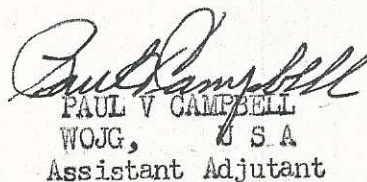 Paul V Campbell
PAUL V CAMPBELL
WOJG, U S A
Assistant Adjutant